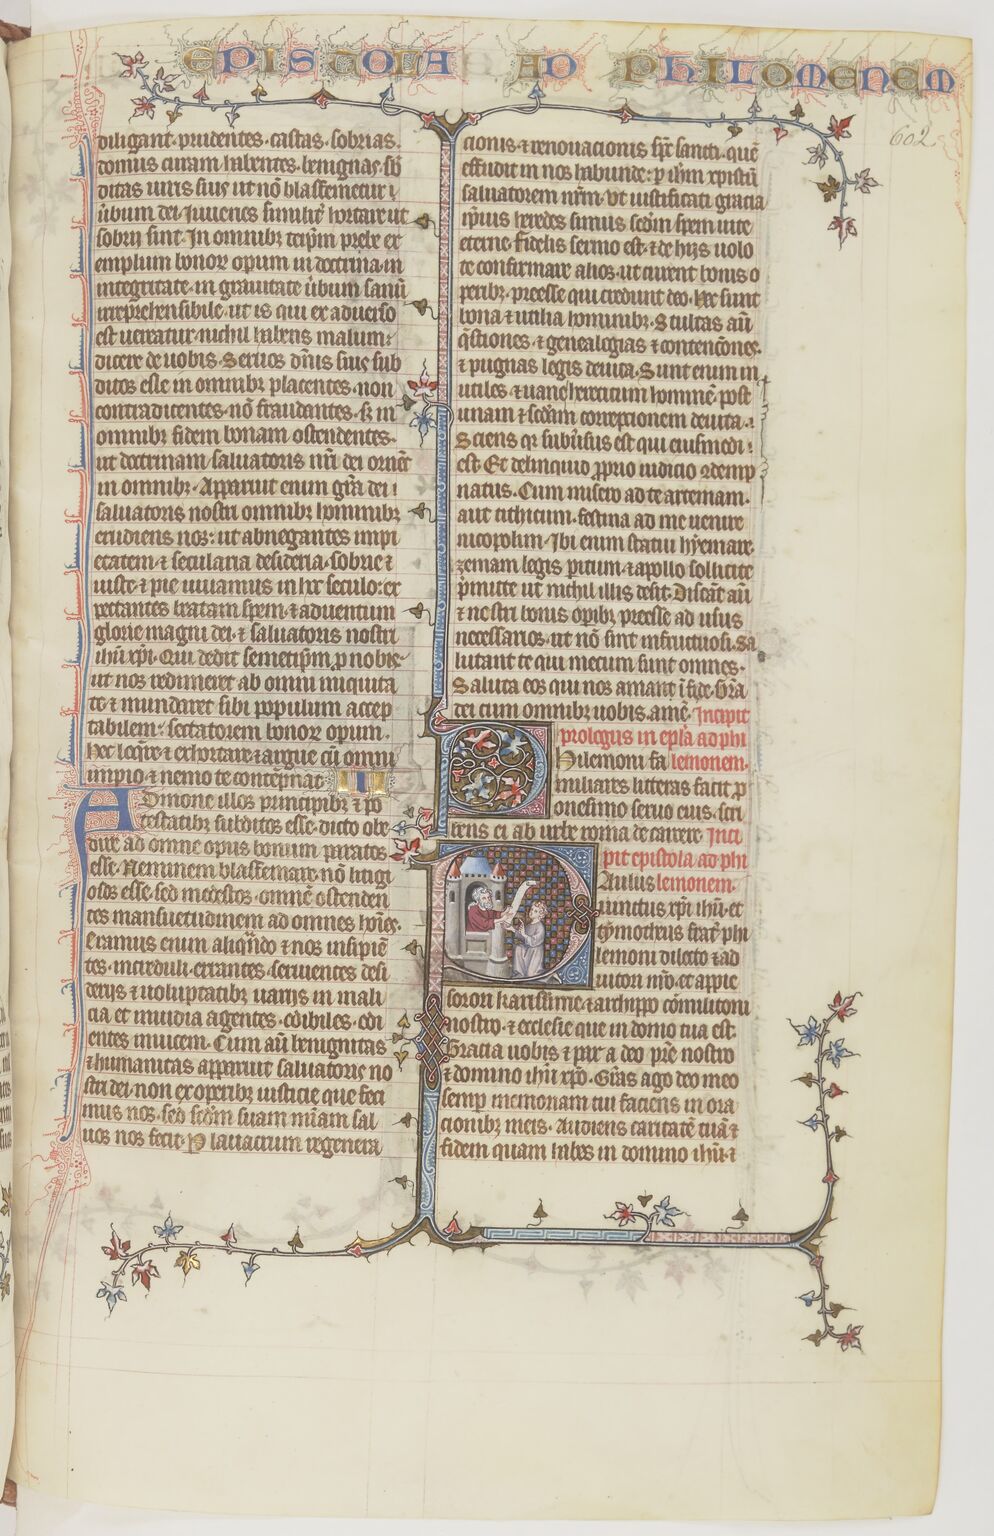 EPISTOLA AD PHILOMENEM
602
diligant. prudentes. castas. sobrias.
domus curam habentes. benignas. sb
ditas uiris suis ut nō blasfemetur
ūbum dei. Iuuenes similit̄ hortare ut
sobrij sint. In omnibꝫ teip̄m prebe ex
emplum bonoꝝ opeꝝ in doctrina. in
integritate. in grauitate. ūbum sanū
irreprehensibile. ut is qui ex aduerso
est uereatur. nichil habens malum.
dicere de uobis. Seruos dn̄is suis sub
ditos esse in omnibꝫ placentes. non
contradicentes. nō fraudantes. sꝫ in
omnibꝫ fidem bonam ostendentes.
ut doctrinam saluatoris nr̄i dei ornēt
in omnibꝫ. Apparuit enim gr̄a dei
saluatoris nostri omnibꝫ hominibꝫ
erudiens nos: ut abnegantes impi
etatem. ⁊ secularia desideria. sobrie ⁊
iuste. ⁊ pie uiuamus in hoc seculo: ex
pectantes beatam spem. ⁊ aduentum
glorie magni dei. ⁊ saluatoris nostri
ihū xp̄i. Qui dedit semetip̄m ꝓ nobis.
ut nos redimeret ab omni iniquita
te. ⁊ mundaret sibi populum accep
tabilem. sectatorem bonoꝝ opeꝝ.
hec loq̄re. ⁊ exhortare. ⁊ argue cū omni
imperio. ⁊ nemo te contēpnat. III
Admone illos principibꝫ ⁊ po
testatibꝫ subditos esse. dicto obe
dire ad omne opus bonum paratos
esse. Neminem blasfemare. nō litigi
osos esse. sed modestos. omnē ostenden
tes mansuetudinem ad omnes hoīes.
Eramus enim aliqn̄do ⁊ nos insipiē
tes. increduli. errantes. seruientes desi
derijs ⁊ uoluptatibꝫ uarijs in mali
cia et inuidia agentes. odibiles. odi
entes inuicem. Cum aū benignitas
⁊ humanitas apparuit saluatoris no
stri dei. non ex operibꝫ iusticie que feci
mus nos. sed scd̄m suam mīam sal
uos nos fecit. P lauacrum regenera
cionis. ⁊ renouacionis sp̄c sancti. quē
effudit in nos habunde: ꝑ ihm̄ xpistū
saluatorem nr̄m. Vt iustificati gracia
ip̄ius heredes simus scd̄m spem uite
eterne. Fidelis sermo est. ⁊ de hijs uolo
te confirmare alios. ut curent bonis o
peribꝫ. preesse qui credunt deo. Hec sunt
bona ⁊ utilia hominibꝫ. Stultas aū
q̄stiones. ⁊ genealogias ⁊ contencōnes.
⁊ pugnas legis deuita. Sunt enim in
utiles. ⁊ uane. hereticum hominē. post
unam ⁊ scd̄am correptionem deuita.
Sciens qꝛ subūsus est qui eiusmodi
est. Et delinquit ꝓprio iudicio ꝯdemp
natus. Cum misero ad te artemam.
aut tithicum. festina ad me uenire
nicopolim. Ibi enim statui hyemare.
zenam legis peritum. ⁊ apollo sollicite
p̄mitte ut nichil illis desit. Discāt aū
⁊ nostri bonis opibꝫ preesse ad usus
necessarios. ut nō sint infructuosi. Sa
lutant te qui mecum sunt omnes.
Saluta eos qui nos amant ī fide. Gr̄a
dei cum omnibꝫ uobis. amē. Incipit
prologus in epl̄a ad phi
Philemoni fa lemonem.
miliares litteras facit. ꝓ
onesimo seruo eius. scri
bens ei ab urbe roma de carcere. Inci
pit epistola ad phi
Paulus lemonem.
uinctus xp̄i ihū. et
tymotheus frat̄ phi
lemoni dilecto ⁊ ad
iutori nr̄o. et appie
sorori karissime. ⁊ archippo cōmilitoni
nostro. ⁊ ecclesie que in domo tua est.
Gracia uobis ⁊ pax a deo pr̄e nostro
⁊ domino ihū xp̄o. Gr̄as ago deo meo
semꝑ memoriam tui faciens in ora
cionibꝫ meis. Audiens caritatē tuā ⁊
fidem quam habes in domino ihū. ⁊